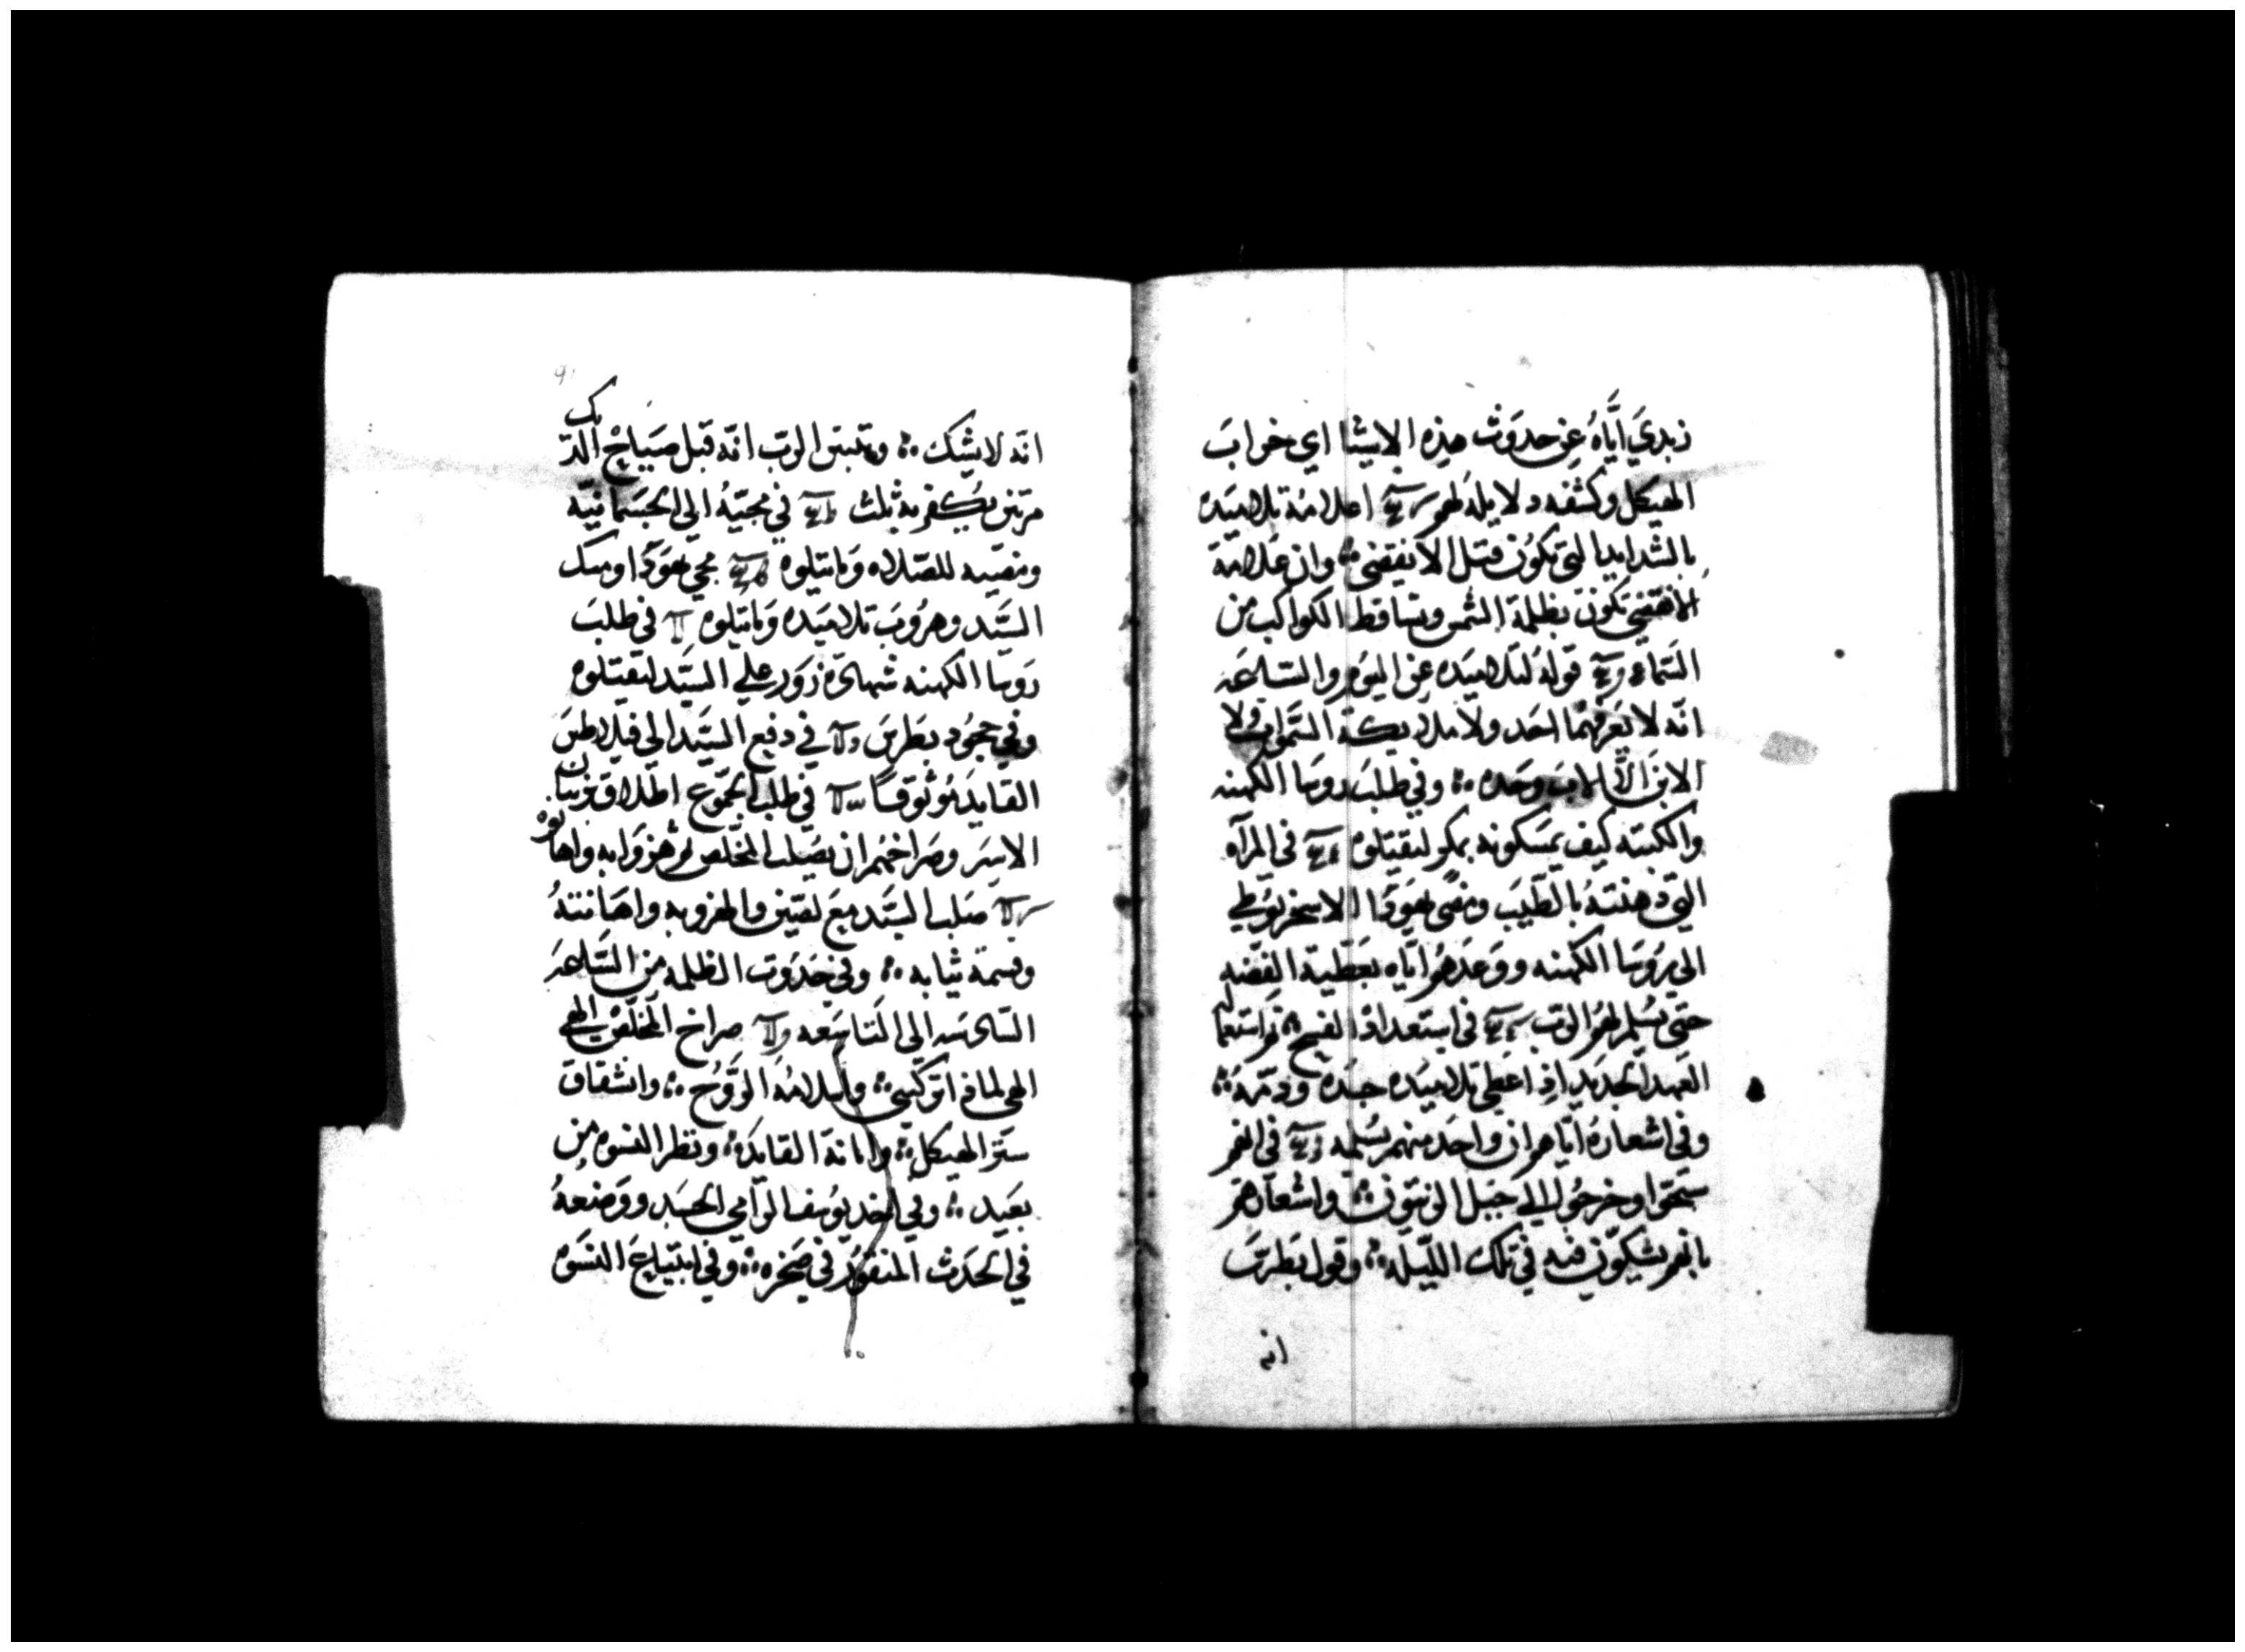 زبدي اياه عن حدوث هذه الاشيا اي خراب
الهيكل وكشفه دلايله لهم اعلامه تلاميده
بالشدايد التي تكون قبل الانقضى وان علامة
الانقضي تكون بظلمة الشمس وتساقط الكواكب من
السماء قوله لتلاميده عن اليوم والساعه
انه لا يعرفهما احد ولا ملايكة السموات ولا
الابن الا الاب وحده ۞ وفي طلب روسا الكهنه
والكتبه كيف يمسكونه بمكر ليقتلوه في المرآه
التي دهنته بالطيب ومضى يهودا الاسخريوطي
الى روسا الكهنه ووعدهم اياه بعطية الفضه
حتى يسلم لهم الرب في استعداد الفسح ثم استعمال
العهد الجديد اذ اعطى تلاميده جسده ودمه
وفي اشعاره اياهم ان واحد منهم يسلمه في انهم
سبحوا وخرجوا الى جبل الزيتون واشعارهم
بانهم يشكون فيه في تلك الليله وقول بطرس
انه
انه لا يشك وتنبى الرب انه قبل صياح الديك
مرتين يكفر به ثلث في مجيه الى الجسمانيه
ومضيه للصلاه وما يتلوه مجي يهودا ومسك
السيد وهروب تلاميده وما يتلوه في طلب
روسا الكهنه شهادة زور على السيد ليقتلوه
وفي جحود بطرس في دفع السيد الى فيلاطس
القايد موثوقا في طلب الجموع اطلاق بربان
الاسر وصراخهم ان يصلب المخلص ثم هزوا به واهانوه
صلب السيد مع لصين والهزو به واهانته
وقسمة ثيابه وفي حدوت الظلمه من الساعه
السادسه الى التاسعه صراخ المخلص الهي
الهي لماذ اتركتني واسلامه الروح وانشقاق
ستر الهيكل وامانة القايد ونظر النسوه من
بعيد وفي اخد يوسف الرامي الجسد ووضعه
في الحدث المنقور في صخره وفي ابتياع النسوه